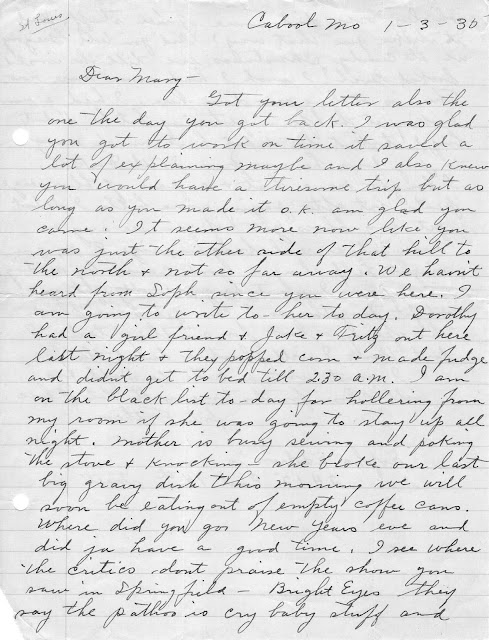 St Louis
Cabool Mo 1-3-35
Dear Mary-
Got your letter also the
one the day you got back. I was glad
you got to work on time it saved a
lot of explaining maybe and I also knew
you would have a tiresome trip but as
long as you made it o.k. am glad you
came. It seems more now like you
was just the other side of that hill to
the north & not so far away. We havn't
heard from Soph since you were here. I
am going to write to her to day. Dorothy
had a girl friend & Jake & Fritz out here
last night & they popped corn & made fudge
and didn't get to bed till 2:30 a.m. I am
on the black list to-day for hollering from
my room if she was going to stay up all
night. Mother is busy sewing and poking
the stove & knocking - she broke our last
big gravy dish this morning we will
soon be eating out of empty coffee cans.
Where did you go New Years eve and
did ja have a good time. I see where
the critics don't praise the show you
saw in Springfield - Bright Eyes they
say the pathos is cry baby stuff and